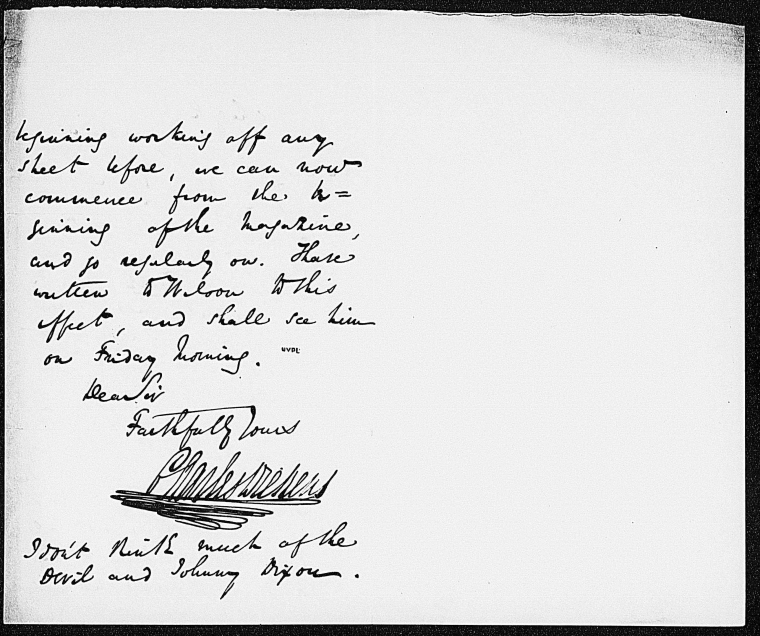 beginning working off any
sheet before, we can now
commence from the be=
ginning of the Magazine,
and go regularly on. I have
written to Wilson to this
effect, and shall see him
on Friday Morning.
Dear Sir
Faithfully Yours
Charles Dickens
I don't think much of the
Devil and Johnny Dixon.